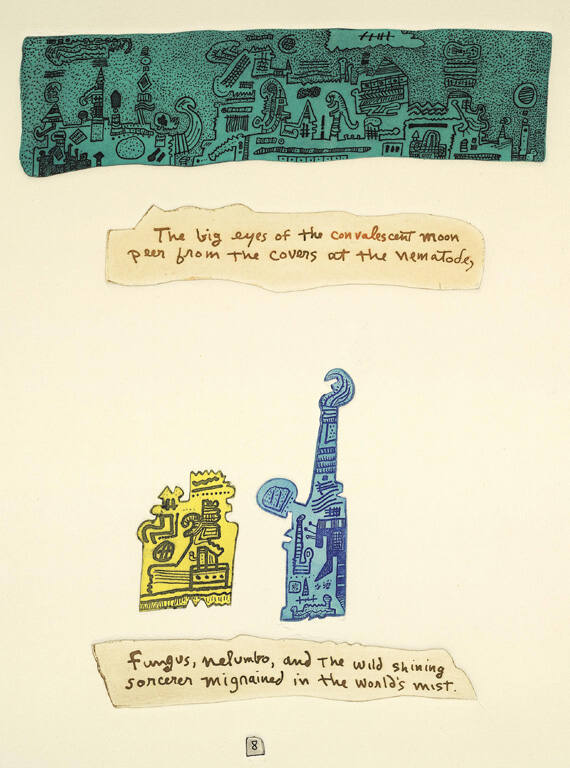 The big eyes of the convalescent moon
peer from the covers at the nematode,
Fungus, nelumbo, and the wild shining
sorcerer migrained in the world's mist.
8